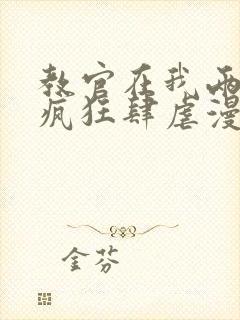 教官在我两
疯狂肆虐漫
金芬